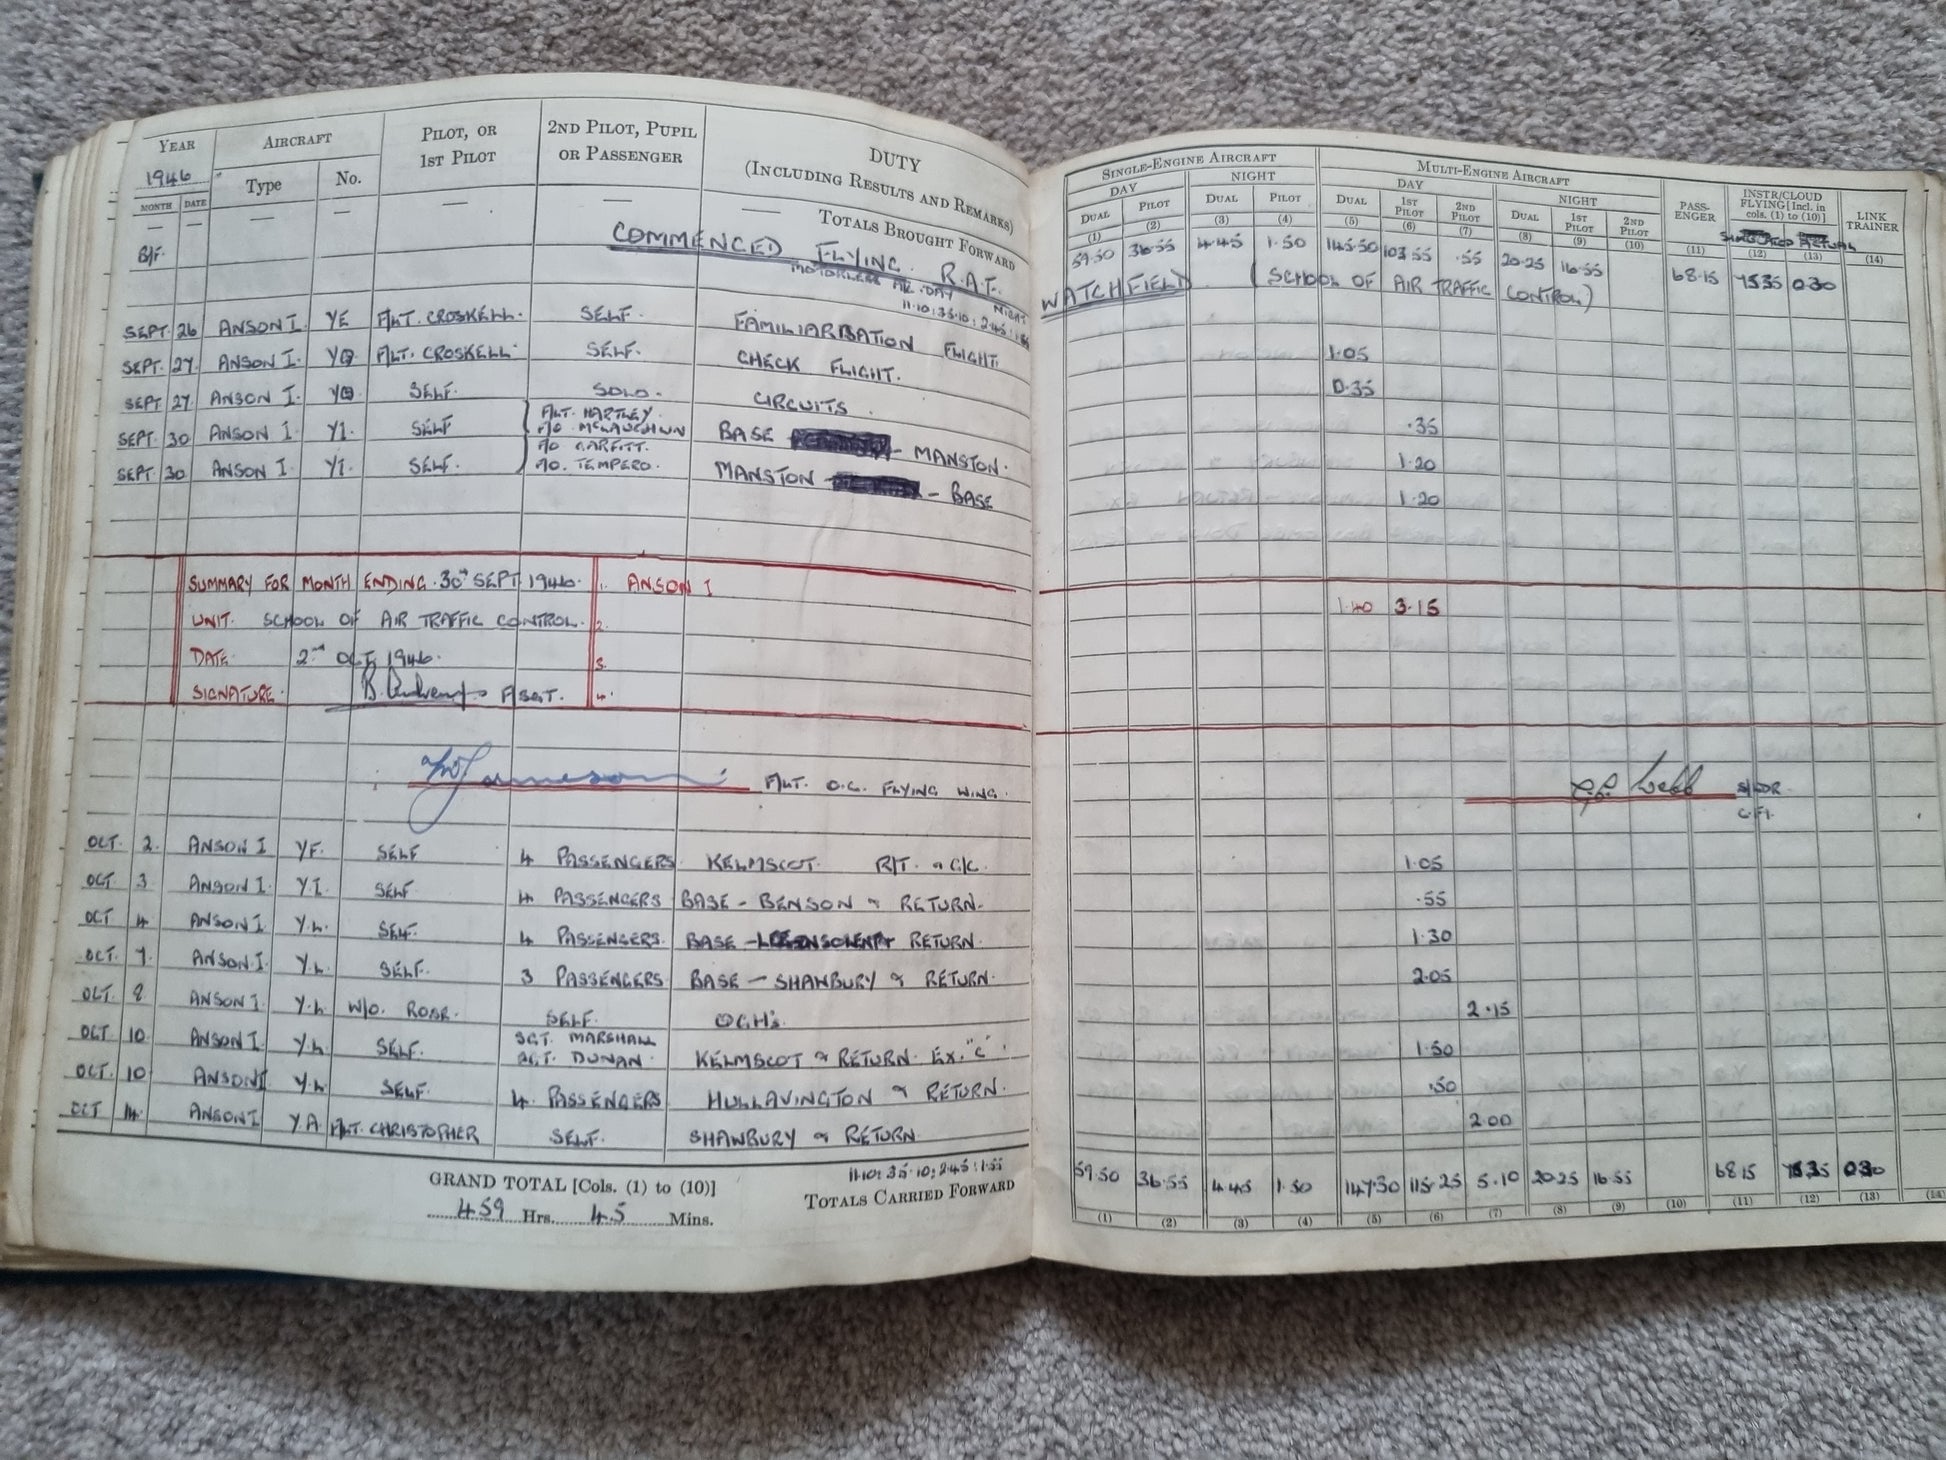 YEAR AIRCRAFT PILOT, OR 1ST PILOT 2ND PILOT, PUPIL OR PASSENGER DUTY (INCLUDING RESULTS AND REMARKS)
1946 Type No.
MONTH DATE
— — — — — TOTALS BROUGHT FORWARD
B/F. COMMENCED FLYING R.A.F. WATCHFIELD (SCHOOL OF AIR TRAFFIC CONTROL)
MOTORLESS DAY NIGHT
11.10: 35.10: 2.45:
SINGLE-ENGINE AIRCRAFT MULTI-ENGINE AIRCRAFT PASSENGER INSTR/CLOUD FLYING [Incl. in cols. (1) to (10)] LINK TRAINER
DAY NIGHT DAY NIGHT
DUAL PILOT DUAL PILOT DUAL 1ST PILOT 2ND PILOT DUAL 1ST PILOT 2ND PILOT
(1) (2) (3) (4) (5) (6) (7) (8) (9) (10) (11) (12) (13) (14)
59.50 36.55 4.45 1.50 145.50 103.55 .55 20.25 16.55 68.15 0.30
SEPT 26 ANSON I. YE F/LT. CROSKELL. SELF. FAMILIARISATION FLIGHT. 1.05
SEPT. 27 ANSON I. F/LT. CROSKELL. SELF. CHECK FLIGHT. 0.35
SEPT 27 ANSON I. SELF. SOLO. CIRCUITS. .35
SEPT. 30 ANSON I YI. SELF F/LT. HARTLEY. BASE - MANSTON. 1.20
SEPT 30 ANSON I. YI. SELF. F/O. TEMPERO. MANSTON - BASE 1.20
SUMMARY FOR MONTH ENDING. 30th SEPT 1946. 1. ANSON I 1.40 3.15
UNIT. SCHOOL OF AIR TRAFFIC CONTROL. 2.
DATE 2nd OCT, 1946. 3.
SIGNATURE. F/SGT. 4.
Jameson F/LT. O.C. FLYING WING. Webb S/LDR. C.F.I.
OCT. 2. ANSON I YF. SELF 4 PASSENGERS KELMSCOT. R/T. 1.05
OCT. 3 ANSON I. Y.I. SELF 4 PASSENGERS BASE - BENSON & RETURN. .55
OCT 4 ANSON I. Y.L. SELF. 4 PASSENGERS. BASE - RETURN. 1.30
OCT. 7. ANSON I. Y.L. SELF. 3 PASSENGERS. BASE - SHAWBURY & RETURN. 2.05
OCT. 8 ANSON I. Y.L. W/O. SELF. Q.G.H's. 2.15
OCT. 10 ANSON I Y.L. SELF. SGT. MARSHALL SGT. DUNAN. KELMSCOT & RETURN. Ex. "C". 1.50
OCT. 10 ANSON I Y.L. SELF. 4. PASSENGERS HULLAVINGTON & RETURN. .50
OCT 14. ANSON I Y.A. F/LT. CHRISTOPHER SELF. SHAWBURY & RETURN. 2.00
GRAND TOTAL [Cols. (1) to (10)] 11.10: 35.10: 2.45: 1.55
459 Hrs. 45 Mins. TOTALS CARRIED FORWARD 59.50 36.55 4.45 1.50 147.30 115.25 5.10 20.25 16.55 68.15 0.30
(1) (2) (3) (4) (5) (6) (7) (8) (9) (10) (11) (12) (13) (14)